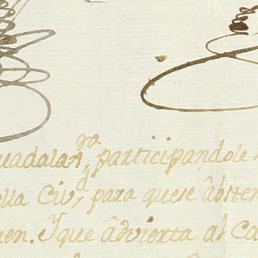 uadalaxra, participandole
lla Ciud, para quese âbsten
en. Y que âdvierta al Ca